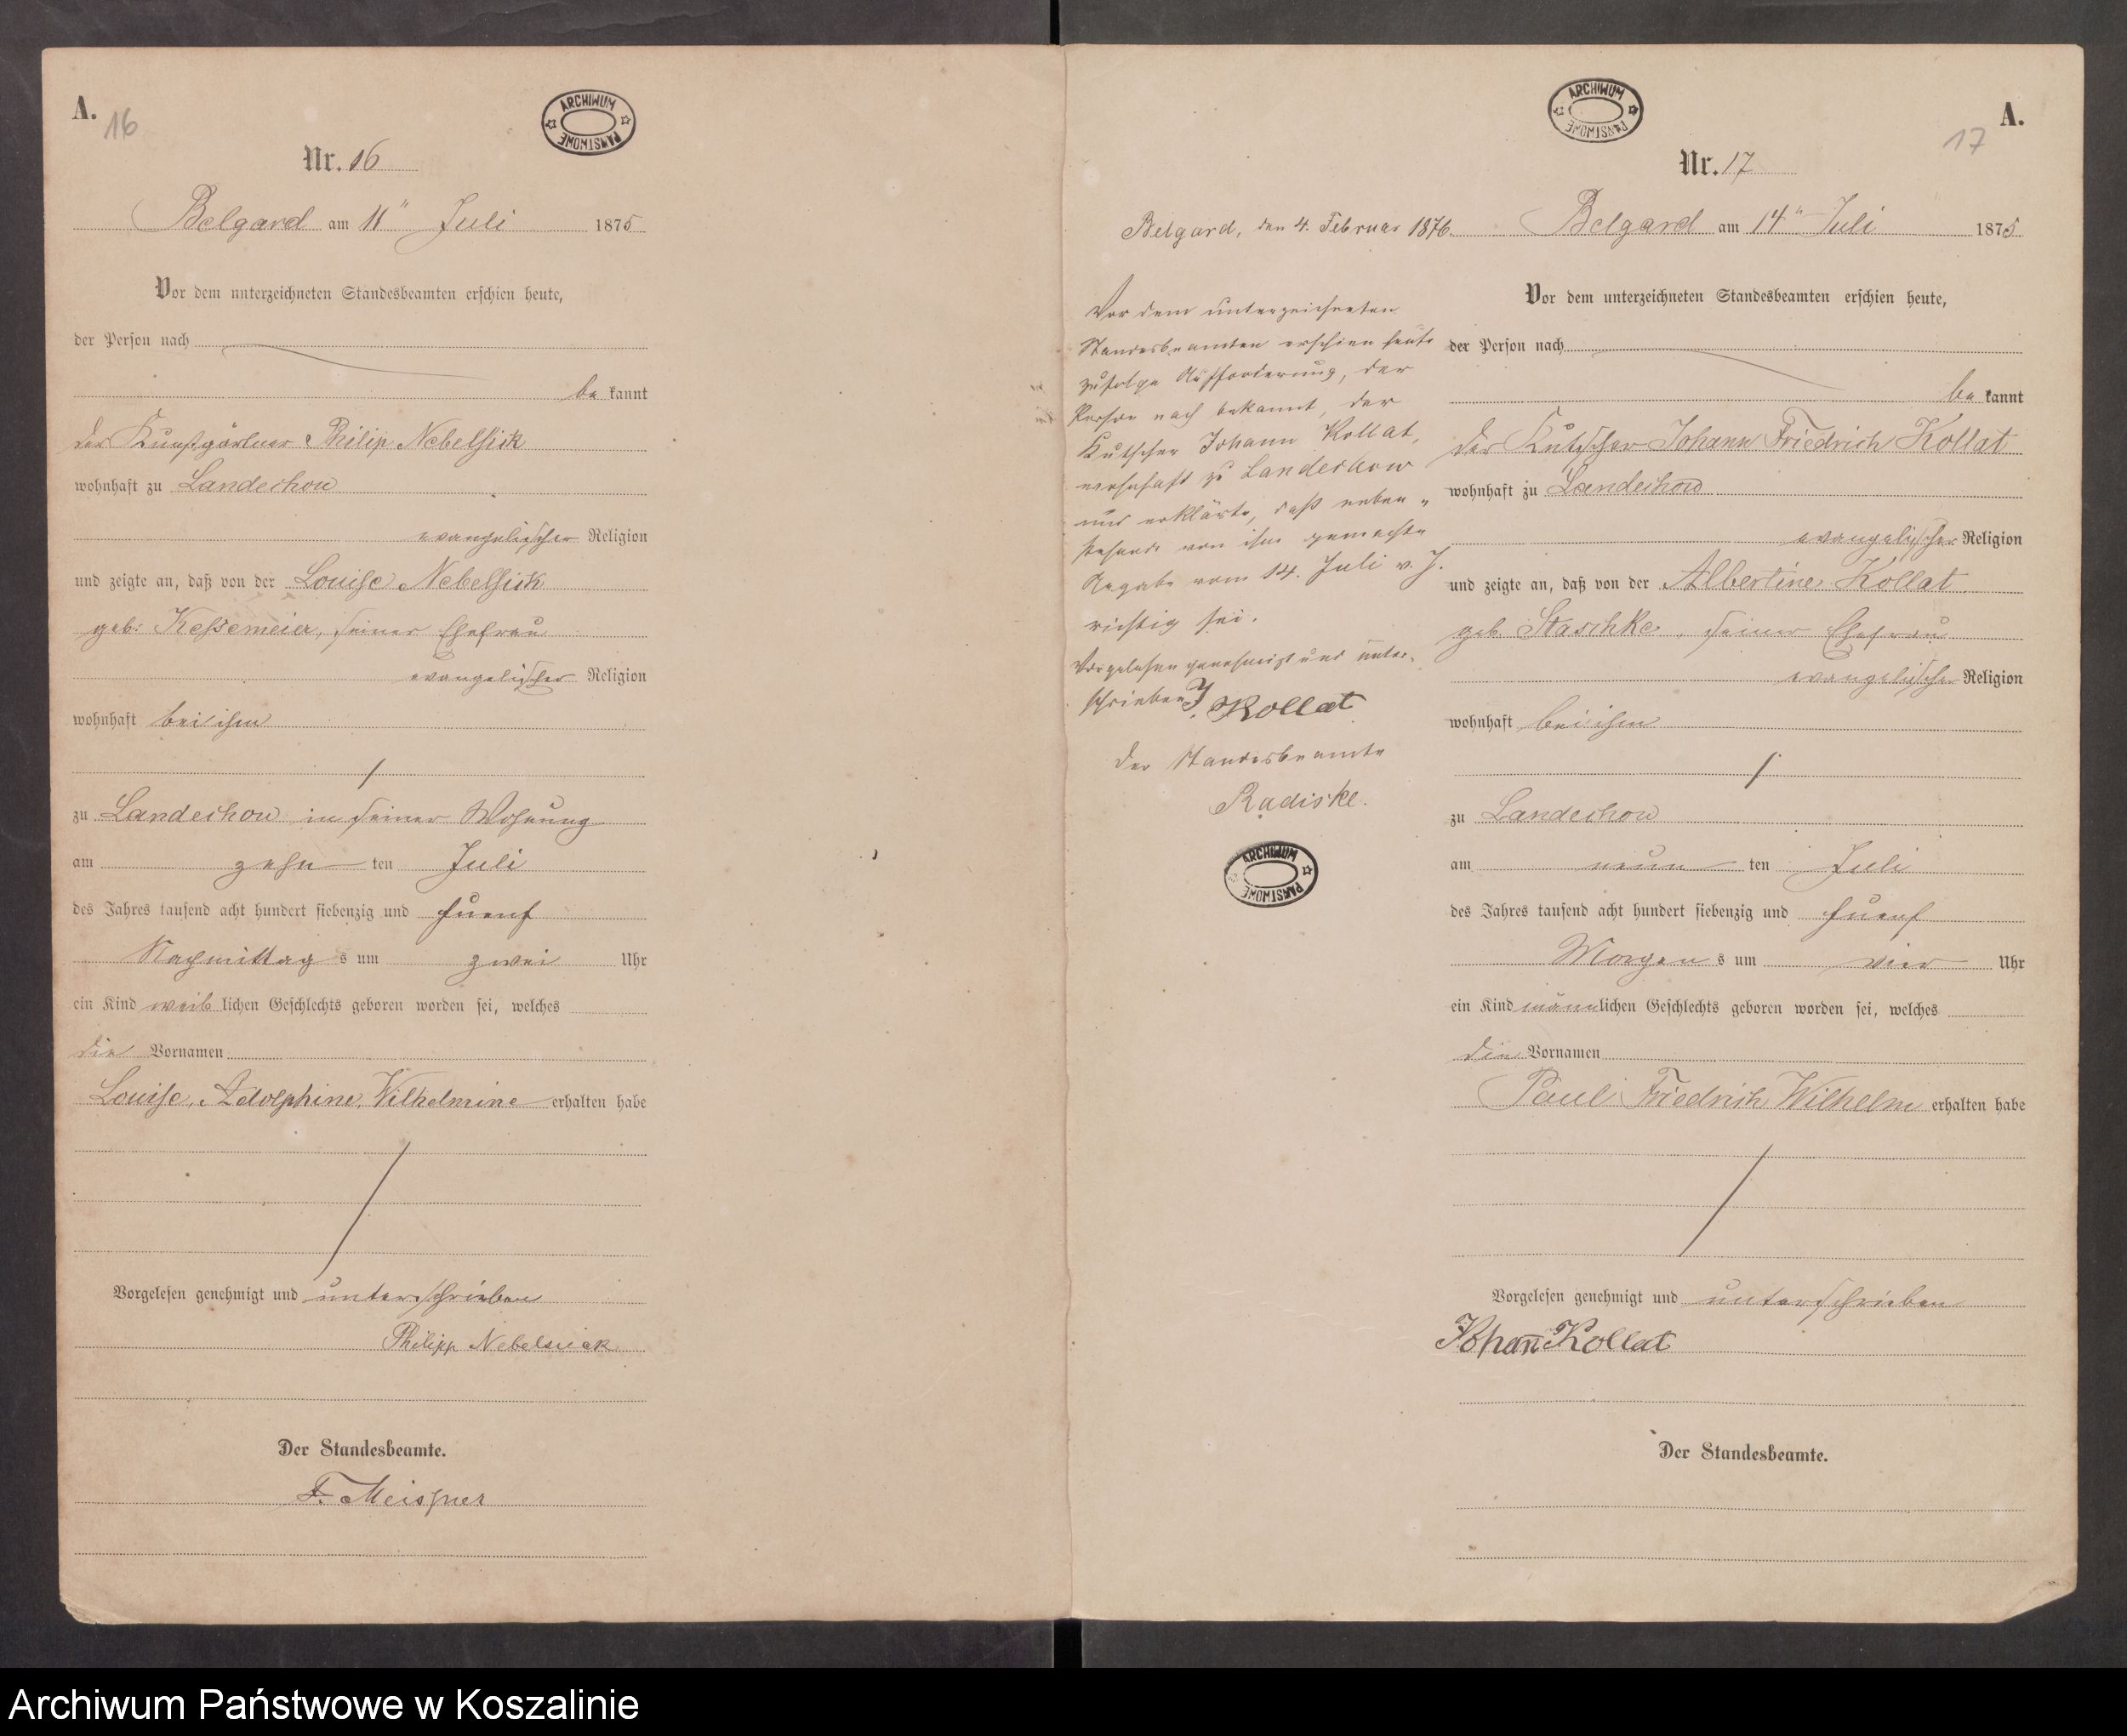 A.
16
ARCHIWUM PAŃSTWOWE
Nr. 16
Belgard am 11" Juli 1875
Vor dem unterzeichneten Standesbeamten erschien heute,
der Person nach
be kannt
der Kunstgärtner Philip Nebelsick
wohnhaft zu Landechow
evangelischer Religion
und zeigte an, daß von der Louise Nebelsick
geb. Kessemeier, seiner Ehefrau
evangelischer Religion
wohnhaft bei ihm
zu Landechow in seiner Wohnung
am zehn ten Juli
des Jahres tausend acht hundert siebenzig und fuenf
Nachmittag s um zwei Uhr
ein Kind weib lichen Geschlechts geboren worden sei, welches
die Vornamen
Louise, Adolphine, Wilhelmine erhalten habe
Vorgelesen genehmigt und unterschrieben
Philipp Nebelsieck
Der Standesbeamte.
F. Meissner
Belgard, den 4. Februar 1876.
Vor dem unterzeichneten
Standesbeamten erschien heute
zufolge Aufforderung, der
Person nach bekannt, der
Kutscher Johann Kollat,
wohnhaft zu Landechow
und erklärte, daß neben-
stehende von ihm gemachte
Angabe vom 14. Juli v. J.
richtig sei.
Vorgelesen genehmigt und unter-
schrieben J. Kollat
Der Standesbeamte
Radiske.
ARCHIWUM PAŃSTWOWE
ARCHIWUM PAŃSTWOWE
A.
17
Nr. 17
Belgard am 14" Juli 1875
Vor dem unterzeichneten Standesbeamten erschien heute,
der Person nach
be kannt
der Kutscher Johann Friedrich Kollat
wohnhaft zu Landechow
evangelischer Religion
und zeigte an, daß von der Albertine Kollat
geb. Staschke, seiner Ehefrau
evangelischer Religion
wohnhaft bei ihm
zu Landechow
am neun ten Juli
des Jahres tausend acht hundert siebenzig und fuenf
Morgen s um vier Uhr
ein Kind männlichen Geschlechts geboren worden sei, welches
die Vornamen
Paul Friedrich Wilhelm erhalten habe
Vorgelesen genehmigt und unterschrieben
Johann Kollat
Der Standesbeamte.
Archiwum Państwowe w Koszalinie